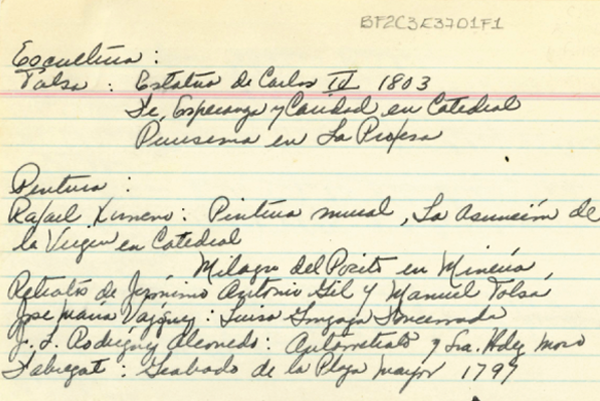 BF2C3E37D1F1
Escultura :
Tolsa : Estatua de Carlos IV 1803
Fe, Esperanza y Caridad en Catedral
Purisima en La Profesa
Pintura :
Rafael Ximeno : Pintura mural, La Asunción de
la Virgen en Catedral
Milagro del Pocito en Minería
Retratos de Jerónimo Antonio Gil y Manuel Tolsá
Jose Maria Vazquez : Luisa Gonzaga Foncerrada
J. L. Rodriguez Alconedo : Autorretrato y Sra. Hdez Moro
Fabregat : Grabado de la Plaza Mayor 1797